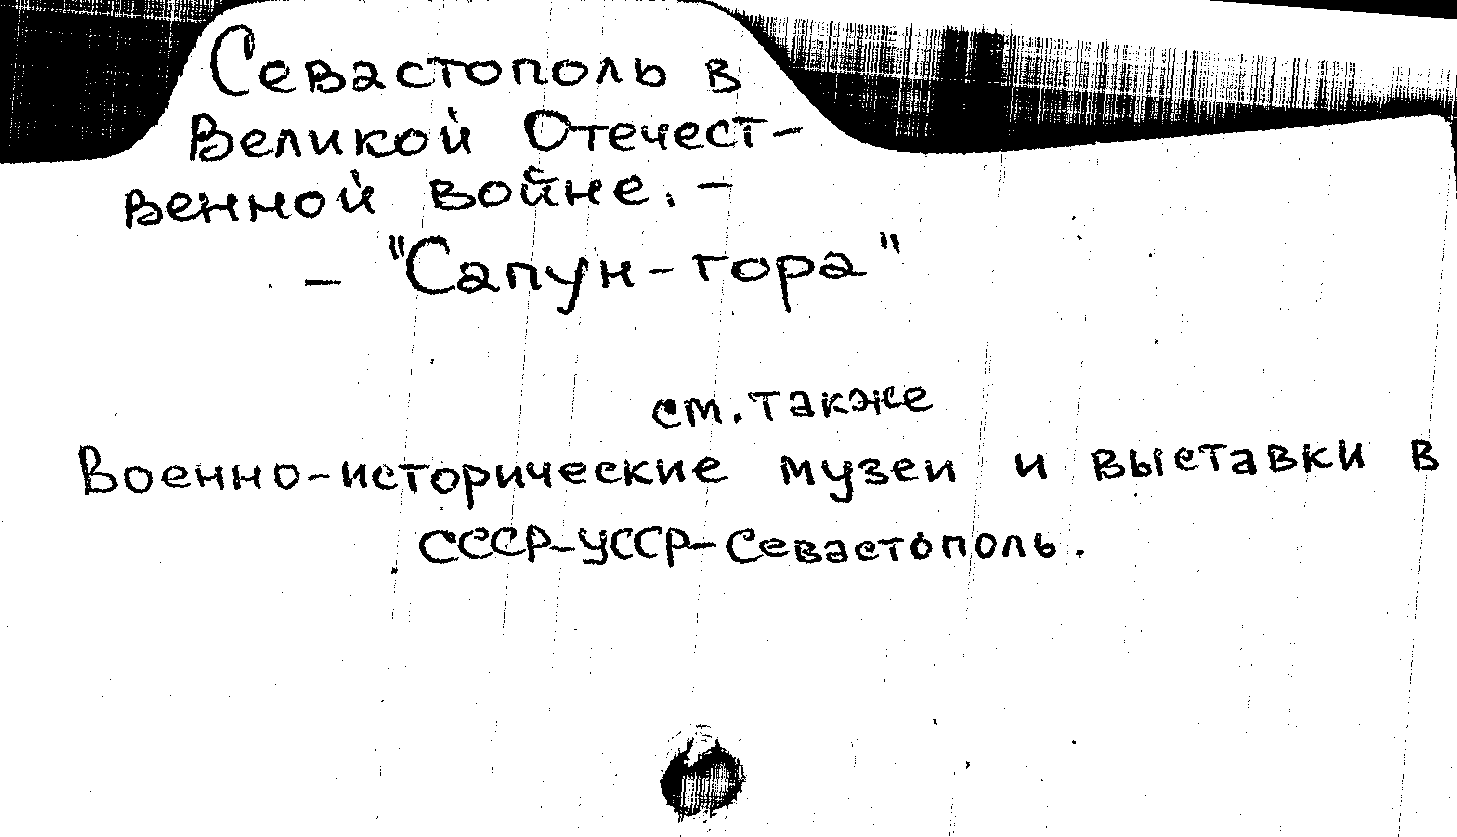 Севастополь в
Великой Отечест-
венной войне. -
- "Сапун-гора"
см. также
Военно-исторические музеи и выставки в
СССР-УССР-Севастополь.